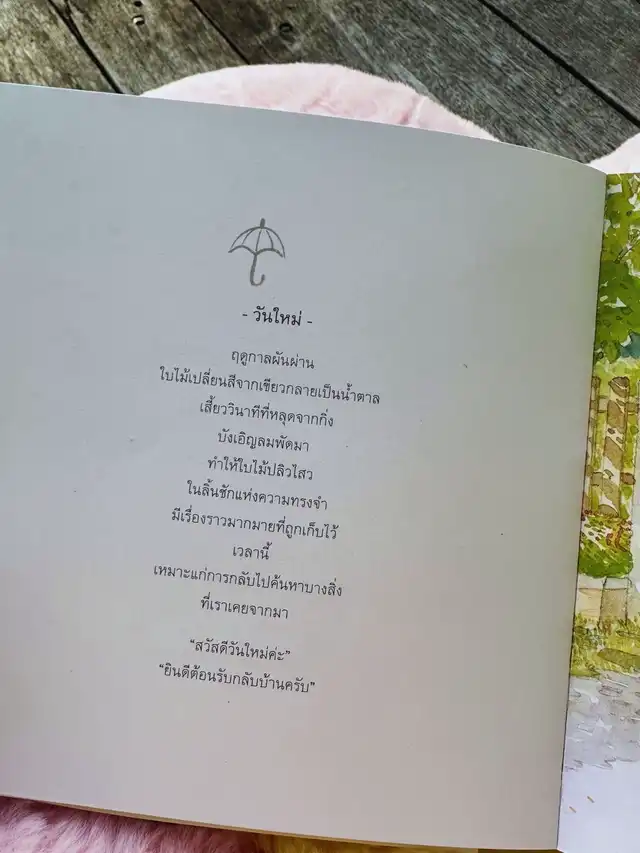 - วันใหม่ -
ฤดูกาลผันผ่าน
ใบไม้เปลี่ยนสีจากเขียวกลายเป็นน้ำตาล
เสี้ยววินาทีที่หลุดจากกิ่ง
บังเอิญลมพัดมา
ทำให้ใบไม้ปลิวไสว
ในลิ้นชักแห่งความทรงจำ
มีเรื่องราวมากมายที่ถูกเก็บไว้
เวลานี้
เหมาะแก่การกลับไปค้นหาบางสิ่ง
ที่เราเคยจากมา
“สวัสดีวันใหม่ค่ะ”
“ยินดีต้อนรับกลับบ้านครับ”